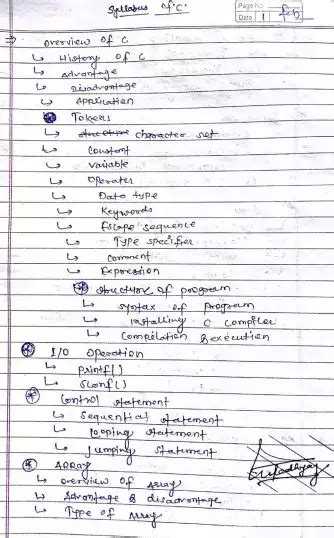 Syllabus of "C"
Page No.
Date 1
⇒ overview of C
↳ History of C
↳ Advantage
↳ Disadvantage
↳ Application
Tokens
↳ structure character set
↳ Constant
↳ Variable
↳ Operater
↳ Data type
↳ Keywords
↳ Escape sequence
↳ Type specifier
↳ comment
↳ Expression
structure of program
↳ syntax of program
↳ installing C compiler
↳ compilation & execution
I/O operation
↳ printf()
↳ scanf()
Control statement
↳ Sequential statement
↳ looping statement
↳ jumping statement
ARRAY
↳ overview of Array
↳ Advantage & disadvantage
↳ Type of Array